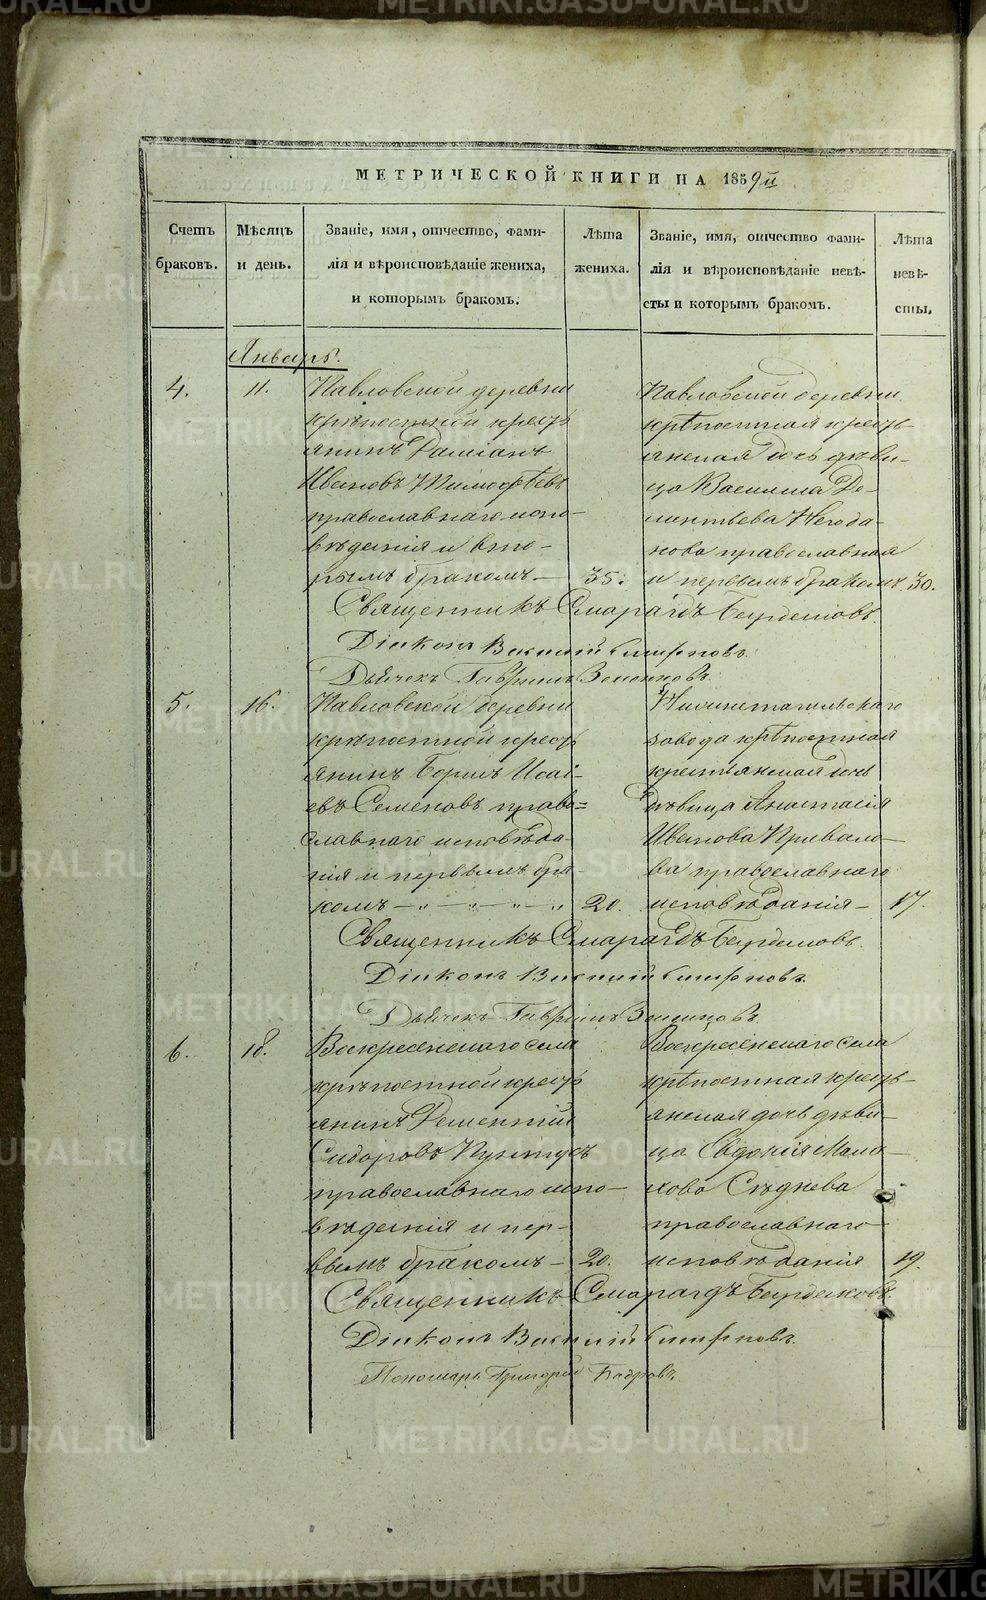 МЕТРИЧЕСКОЙ КНИГИ НА 1859й
Счетъ браковъ.
Мѣсяцъ и день.
Званіе, имя, отчество, фами-
лія и вѣроисповѣданіе жениха,
и которымъ бракомъ.
Лѣта жениха.
Званіе, имя, отчество фами-
лія и вѣроисповѣданіе невѣ-
сты и которымъ бракомъ.
Лѣта невѣ-
сты.
Январь.
4. 11.
Павловской деревни
крѣпостной кресть
янинъ Даміанъ
Ивановъ Тимофѣевъ
православнаго испо-
вѣданія и вто-
рымъ бракомъ- 35.
Павловской деревни
крѣпостная кресть-
янская дочь дѣви-
ца Василиса Де-
ментьева Негода-
нова православная
и первымъ бракомъ. 30.
Священникъ Смарагдъ Бурдуковъ.
Діаконъ Василій Смирновъ.
Дьячекъ Гавріилъ
5. 16.
Павловской деревни
крѣпостной кресть
янинъ Борисъ Исаі-
евъ Семеновъ право=
славнаго исповѣда-
нія и первымъ бра-
комъ 20.
Нижнетагильскаго
завода крѣпостная
крестьянская дочь
дѣвица Анастасія
Иванова Привало-
ва православнаго
исповѣданія- 17.
Священникъ Смарагдъ
Діаконъ Василій Смирновъ.
Дьячекъ Гавріилъ
6. 18.
Воскресенскаго села
крѣпостной кресть
янинъ Дементій
Сидоровъ
православнаго испо-
вѣданія и пер-
вымъ бракомъ- 20.
Воскресенскаго села
крѣпостная кресть-
янская дочь дѣви-
ца Евдокія Мала-
хова Сѣднева
православнаго
исповѣданія 19.
Священникъ Смарагдъ
Діаконъ Василій Смирновъ.
Пономарь Григорій
METRIKI.GASO-URAL.RU